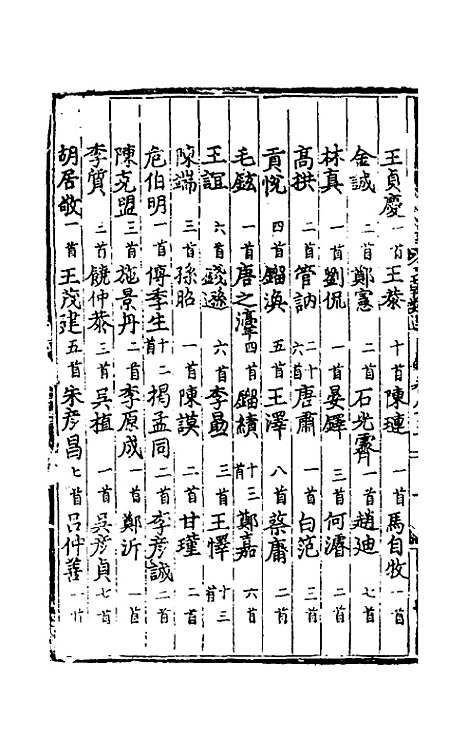 王貞慶 一首 王恭 十首 陳璉 一首 馬自牧 一首
金誠 二首 鄭憲 二首 石光霽 一首 趙迪 七首
林真 一首 劉侃 一首 晏鐸 三首 何濬 二首
高拱 二首 管訥 二十六首 唐肅 一首 白范 三首
貢悅 四首 鎦渙 五首 王澤 八首 蔡庸 二首
毛鉉 一首 唐之淳 四首 鎦績 十三首 鄭嘉 六首
王誼 六首 錢遜 六首 李勗 三首 王懌 十三首
陳端 三首 孫昭 一首 陳謨 二首 甘瑾 二首
危伯明 一首 傅季生 十二首 揭孟同 二首 李彥誠 二首
陳克盟 三首 施景丹 二首 李原成 一首 鄭沂 一首
李質 三首 饒仲恭 三首 吳植 一首 吳彥貞 七首
胡居敬 一首 王茂建 五首 朱彥昌 七首 呂仲善 一首